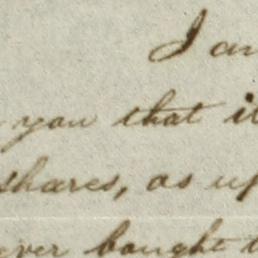 I am
you that it
shares, as up
ever bought t